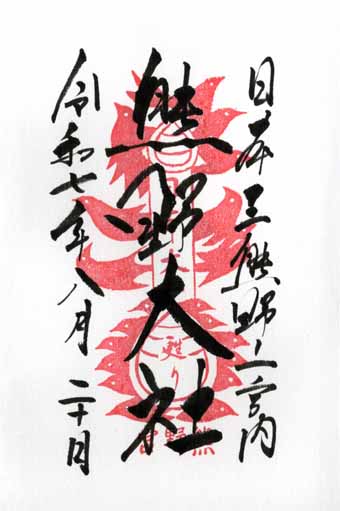 日本三熊野之宮内
熊野大社
令和七年八月二十日
甦り
宮野熊